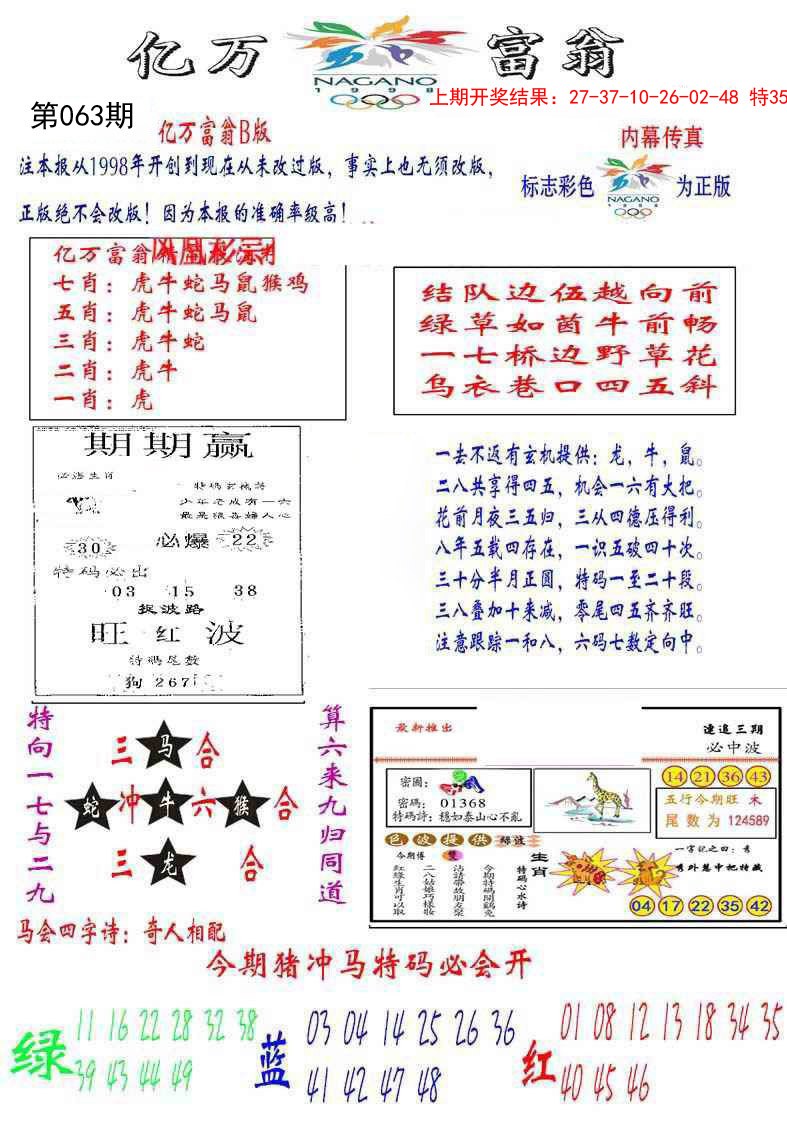 亿万
富翁
NAGANO
1998
上期开奖结果：27-37-10-26-02-48 特35
第063期
亿万富翁B版
内幕传真
注本报从1998年开创到现在从未改过版，事实上也无须改版，
标志彩色
NAGANO
1998
为正版
正版绝不会改版！因为本报的准确率级高！
亿万富翁
七肖：虎牛蛇马鼠猴鸡
五肖：虎牛蛇马鼠
三肖：虎牛蛇
二肖：虎牛
一肖：虎
结队边伍越向前
绿草如茵牛前畅
一七桥边野草花
乌衣巷口四五斜
期期赢
必爆
30
22
特码必出
03 15 38
捉波路
旺红波
特码尾数
狗267
一去不返有玄机提供：龙，牛，鼠。
二八共享得四五，机会一六有大把。
花前月夜三五归，三从四德压得利。
八年五载四存在，一识五破四十次。
三十分半月正圆，特码一至二十段。
三八叠加十来减，零尾四五齐齐旺。
注意跟踪一和八，六码七数定向中。
特向一七与二九
三马合
蛇冲牛六猴合
三龙合
算六来九归同道
最新推出
连追三期
必中波
14 21 36 43
密图：
密码：01368
特码诗：穩如泰山心不亂
五行今期旺 木
尾数为 124589
色波提供
绿波
今期博
生肖
特码心水诗
一字记之曰：秀
秀外慧中把特藏
04 17 22 35 42
马会四字诗：奇人相配
今期猪冲马特码必会开
绿
11 16 22 28 32 38
39 43 44 49
蓝
03 04 14 25 26 36
41 42 47 48
红
01 08 12 13 18 34 35
40 45 46